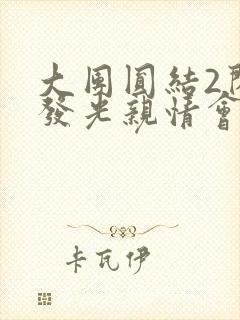 大团圓結2
發光親情會
卡瓦伊